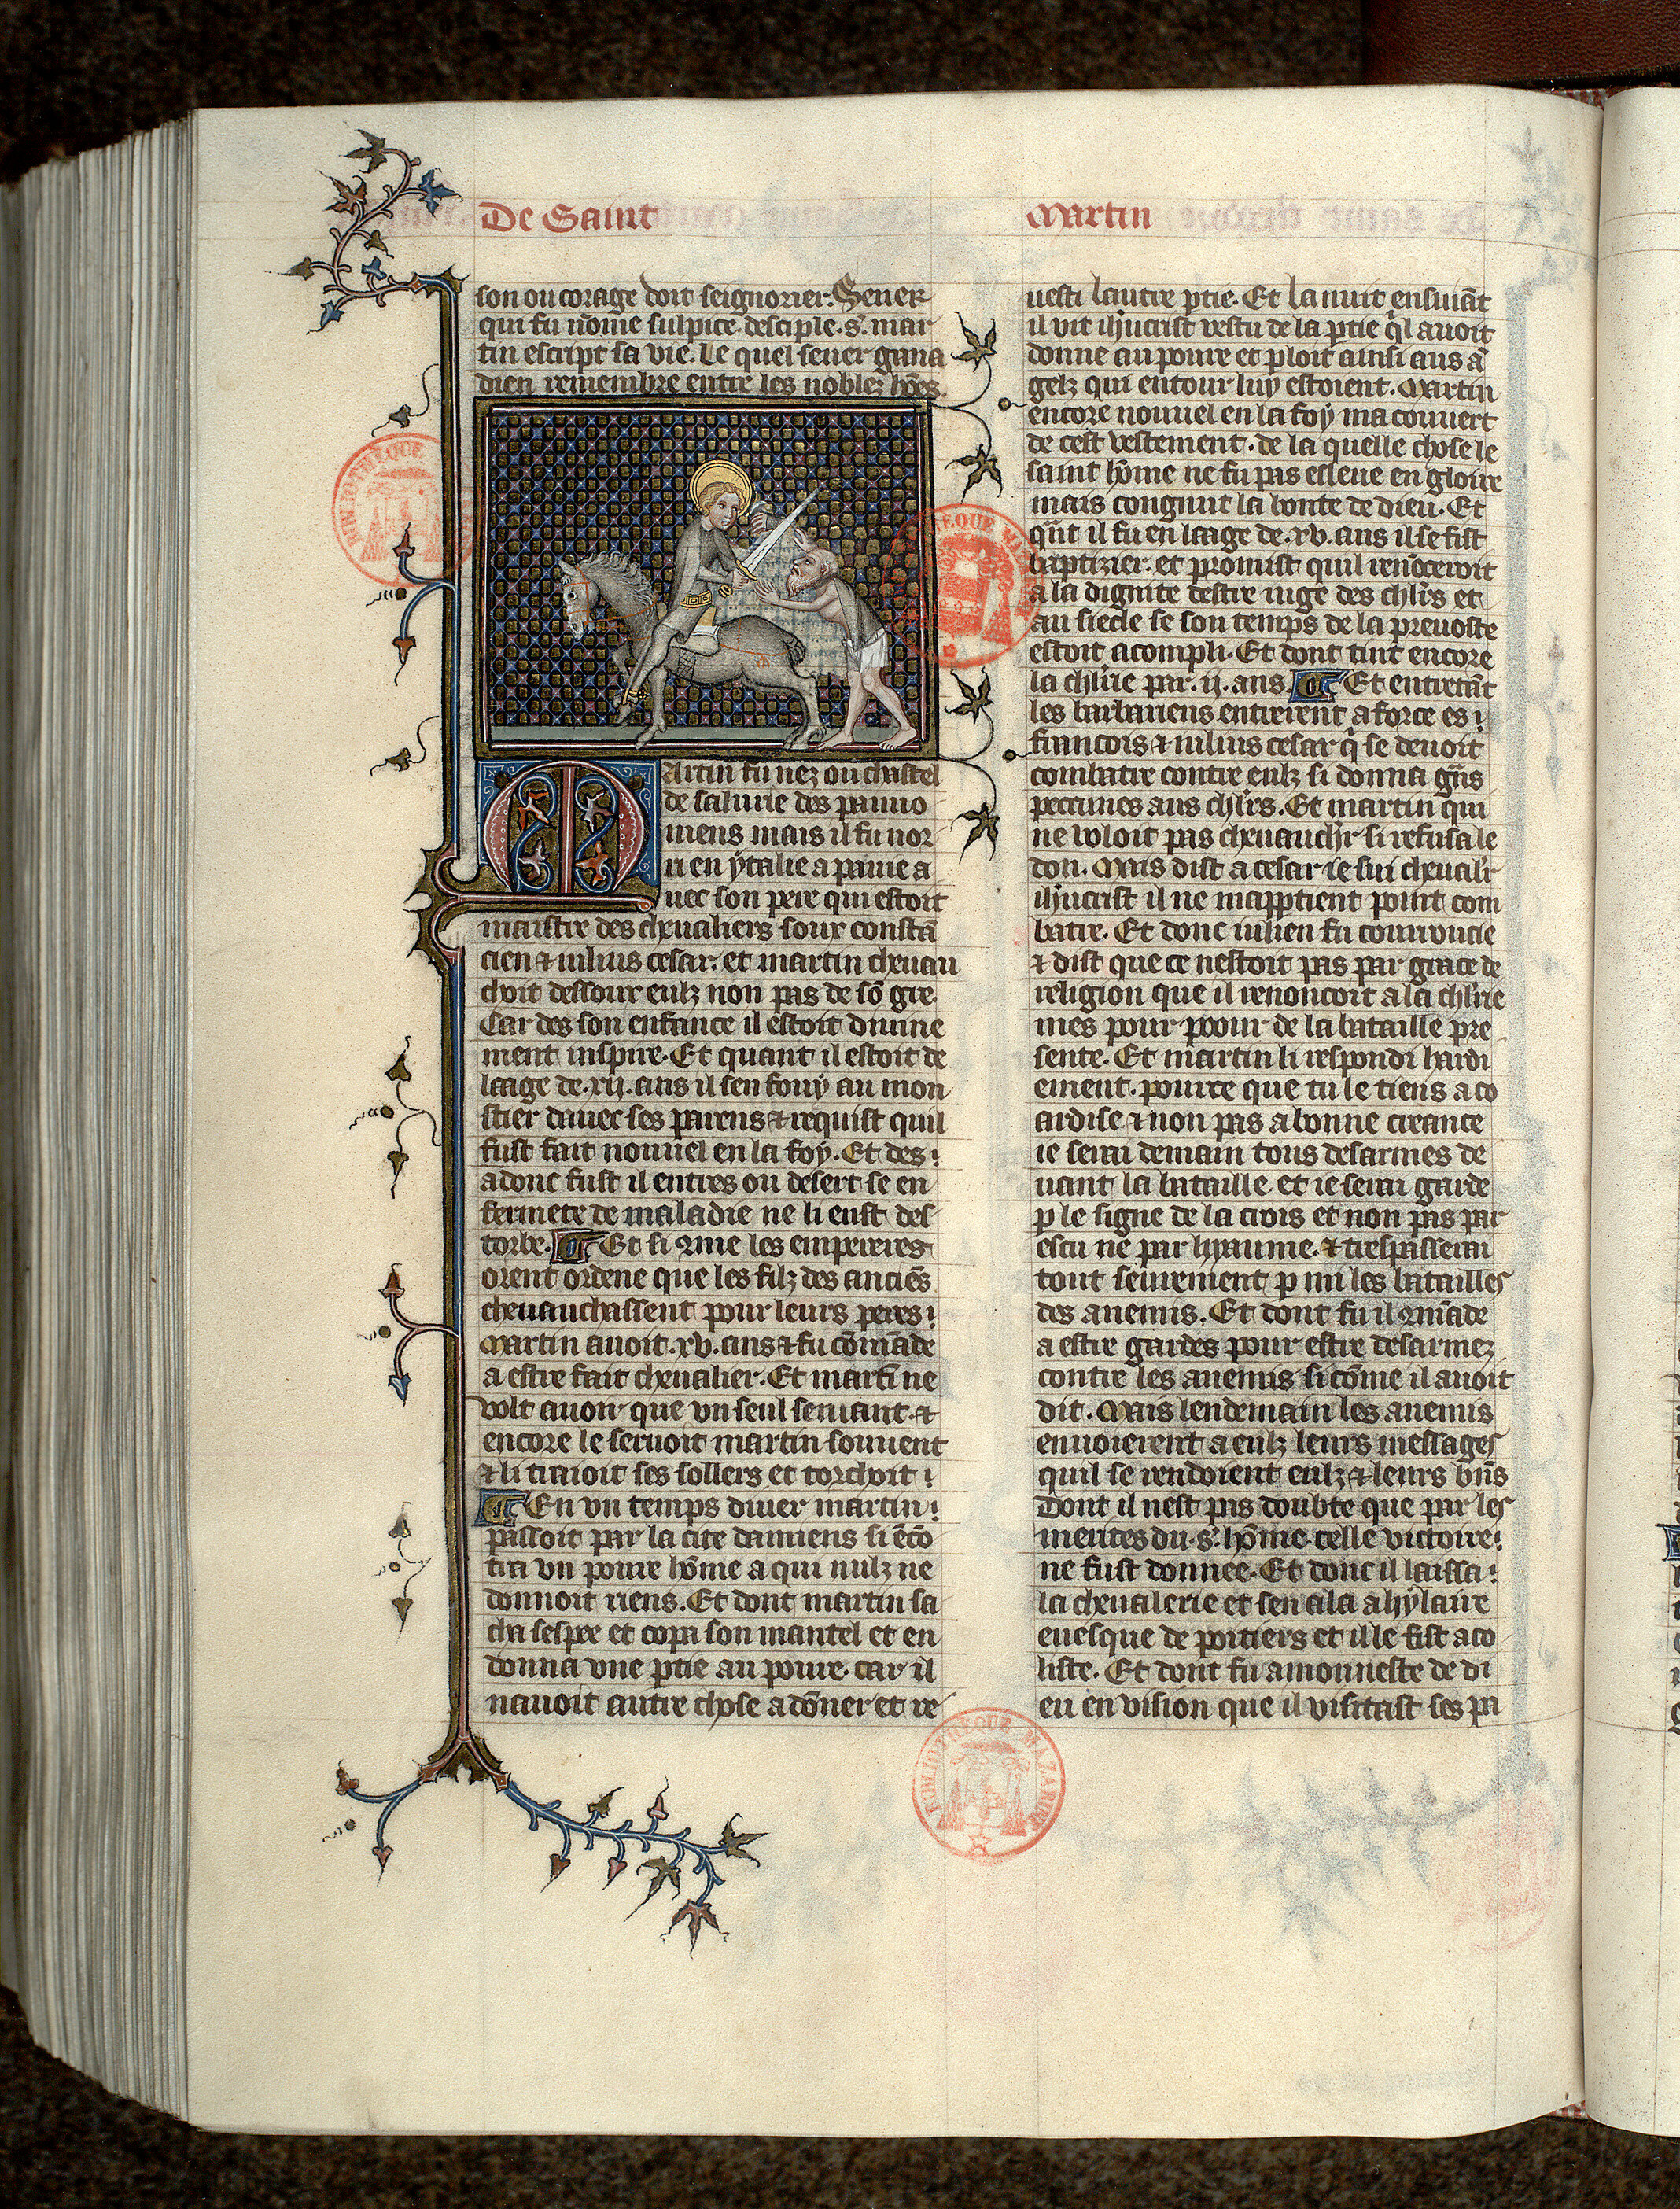 De Saint
Martin
son ou corage doit seignorier. Seuer
qui fu nōme sulpice. desciple .s. mar
tin escript sa vie. Le quel seuer gana
dien remembre entre les noblez hōes.
Martin fu nez ou chastel
de salurie des panno
niens mais il fu nor
ri en ytalie a pauie a
uec son pere qui estoit
maistre des cheualiers soux constā
cien ⁊ iulius cesar. et martin cheuau
choit dessoux eulz non pas de sō gre.
Car des son enfance il estoit diuine
ment inspire. Et quant il estoit de
laage de .xij. ans il sen fouy au mon
stier dauec ses parens ⁊ requist quil
fust fait nouuel en la foy. Et des
adonc fust il entres ou desert se en
fermete de maladie ne li eust des
torbe. Et si 9me les empereres
orent ordene que les filz des anciēs
cheuauchassent pour leurs peres
Martin auoit .xv. ans ⁊ fu cōmāde
a estre fait cheualier. Et martī ne
volt auoir que vn seul seruant. ⁊
encore le seruoit martin souuent
⁊ li tiroit ses sollers et torchoit
En vn temps diuer martin
passoit par la cite damiens si ēcō
tra vn poure hōme a qui nulz ne
donnoit riens. Et dont martin sa
cha sespee et copa son mantel et en
donna vne ptie au poure. car il
nauoit autre chose a dōner et re
uesti lautre ptie. Et la nuit ensuiāt
il vit ihūcrist vestu de la ptie q̄l auoit
donne au poure et ploit ainsi aus ā
gelz qui entour luy estoient. Martin
encore nouuel en la foy ma couuert
de cest vestement. de la quelle chose le
saint hōme ne fu pas esleue en gloire
mais congnut la bonte de dieu. Et
qn̄t il fu en laage de .xv. ans il se fist
baptizier. et promist quil renōceroit
a la dignite destre iuge des chlr̄s et
au siecle se son temps de la preuoste
estoit acompli. Et dont tint encore
la chlr̄ie par .ij. ans. Et entretāt
les barbariens entrerent a force es
francois ⁊ iulius cesar q̄ se deuoit
combatre contre eulz si donna gn̄s
pecunes aus chlr̄s. Et martin qui
ne voloit pas cheuauchr̄ si refusa le
don. Mais dist a cesar ie sui cheualr̄
ihūcrist il ne mapptient point com
batre. Et donc iulien fu courroucie
⁊ dist que ce nestoit pas par grace de
religion que il renoncoit a la chlr̄ie
mes pour poour de la bataille pre
sente. Et martin li respondi hardi
ement. pource que tu le tiens a co
ardise ⁊ non pas a bonne creance
ie serai demain tous desarmes de
uant la bataille et ie serai garde
p le signe de la crois et non pas par
escu ne par hyaume. ⁊ trespasserai
tout seurement p mi les batailles
des anemis. Et dont fu il 9māde
a estre gardes pour estre desarmez
contre les anemis si cōme il auoit
dit. Mais lendemain les anemis
enuoierent a eulz leurs messages
quil se rendoient eulz ⁊ leurs bn̄s
Dont il nest pas doubte que par les
merites du .s. hōme celle victoire
ne fust donnee. Et donc il laissa
la cheualerie et sen ala a hylaire
euesque de poitiers et il le fist aco
liste. Et dont fu amonneste de di
eu en vision que il visitast ses pa
BIBLIOTHÈQUE MAZARINE